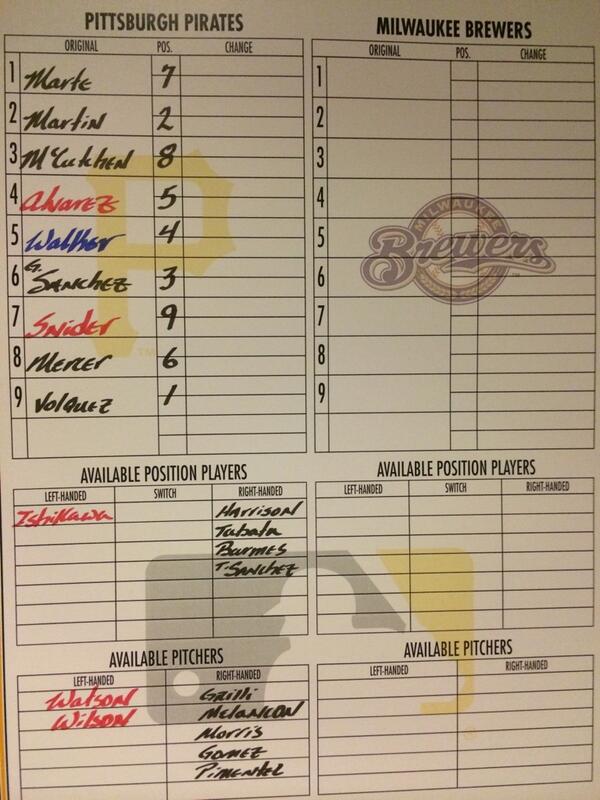 PITTSBURGH PIRATES
ORIGINAL POS. CHANGE
1 Marte 7
2 Martin 2
3 McCutchen 8
4 Alvarez 5
5 Walker 4
6 G. Sanchez 3
7 Snider 9
8 Mercer 6
9 Volquez 1
MILWAUKEE BREWERS
ORIGINAL POS. CHANGE
1
2
3
4
5
6
7
8
9
MILWAUKEE
Brewers
P
TM
AVAILABLE POSITION PLAYERS
LEFT-HANDED SWITCH RIGHT-HANDED
Ishikawa Harrison
Tabata
Barmes
T. Sanchez
AVAILABLE POSITION PLAYERS
LEFT-HANDED SWITCH RIGHT-HANDED
AVAILABLE PITCHERS
LEFT-HANDED RIGHT-HANDED
Watson Grilli
Wilson Melancon
Morris
Gomez
Pimentel
AVAILABLE PITCHERS
LEFT-HANDED RIGHT-HANDED